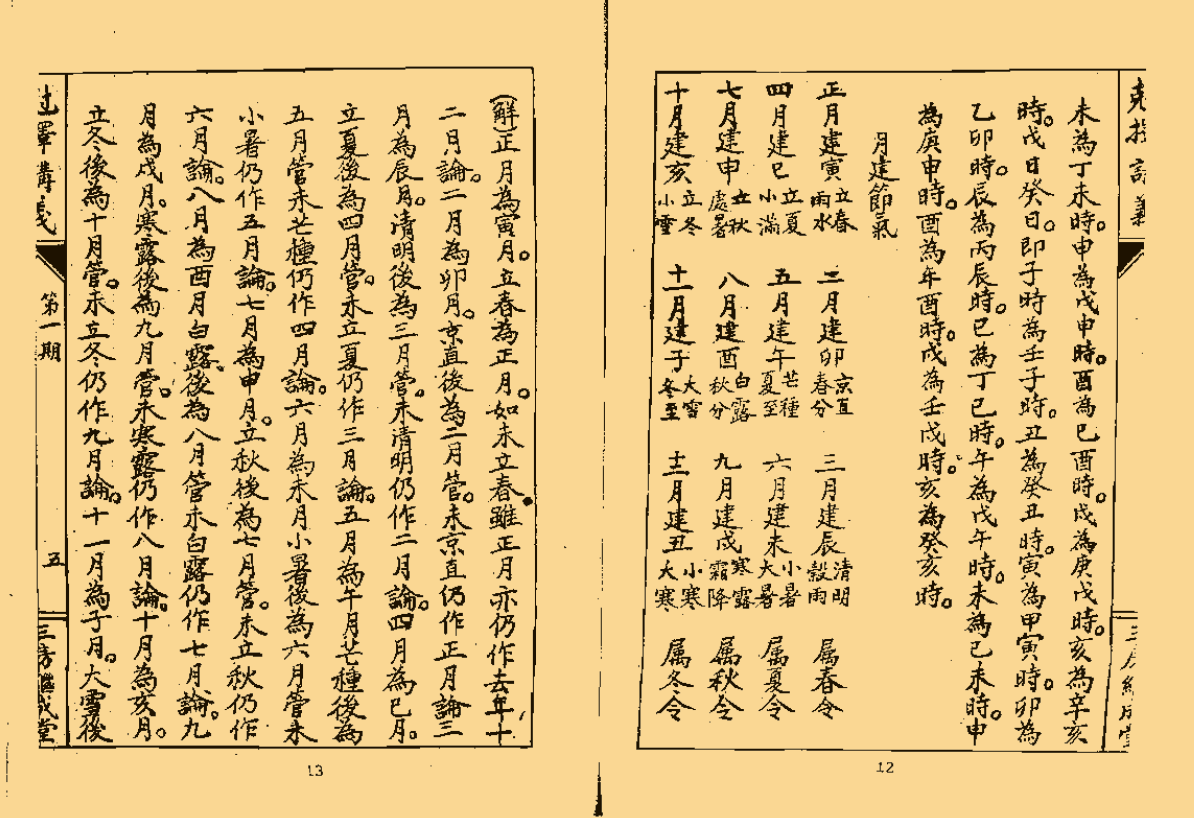 克擇講義
未為丁未時。申為戊申時。酉為己酉時。戌為庚戌時。亥為辛亥
時。戊日癸日。即子時為壬子時。丑為癸丑時。寅為甲寅時。卯為
乙卯時。辰為丙辰時。巳為丁巳時。午為戊午時。未為己未時。申
為庚申時。酉為年酉時。戌為壬戌時。亥為癸亥時。
月建節氣
正月建寅 立春 雨水 二月建卯 京直 春分 三月建辰 清明 穀雨 属春令
四月建巳 立夏 小滿 五月建午 芒種 夏至 六月建未 小暑 大暑 属夏令
七月建申 立秋 處暑 八月建酉 白露 秋分 九月建戌 寒露 霜降 属秋令
十月建亥 立冬 小雪 十一月建子 大雪 冬至 十二月建丑 小寒 大寒 属冬令
12
(解)正月為寅月。立春為正月。如未立春。雖正月亦仍作去年十
二月論。二月為卯月。京直後為二月管。未京直仍作正月論三
月為辰月。清明後為三月管。未清明仍作二月論。四月為巳月。
立夏後為四月管。未立夏仍作三月論。五月為午月芒種後為
五月管未芒種仍作四月論。六月為未月小暑後為六月管未
小暑仍作五月論。七月為申月。立秋後為七月管。未立秋仍作
六月論。八月為酉月白露後為八月管未白露仍作七月論。九
月為戌月。寒露後為九月管。未寒露仍作八月論。十月為亥月。
立冬後為十月管。未立冬仍作九月論。十一月為子月。大雪後
講義 第一期 五 三房繼成堂
13